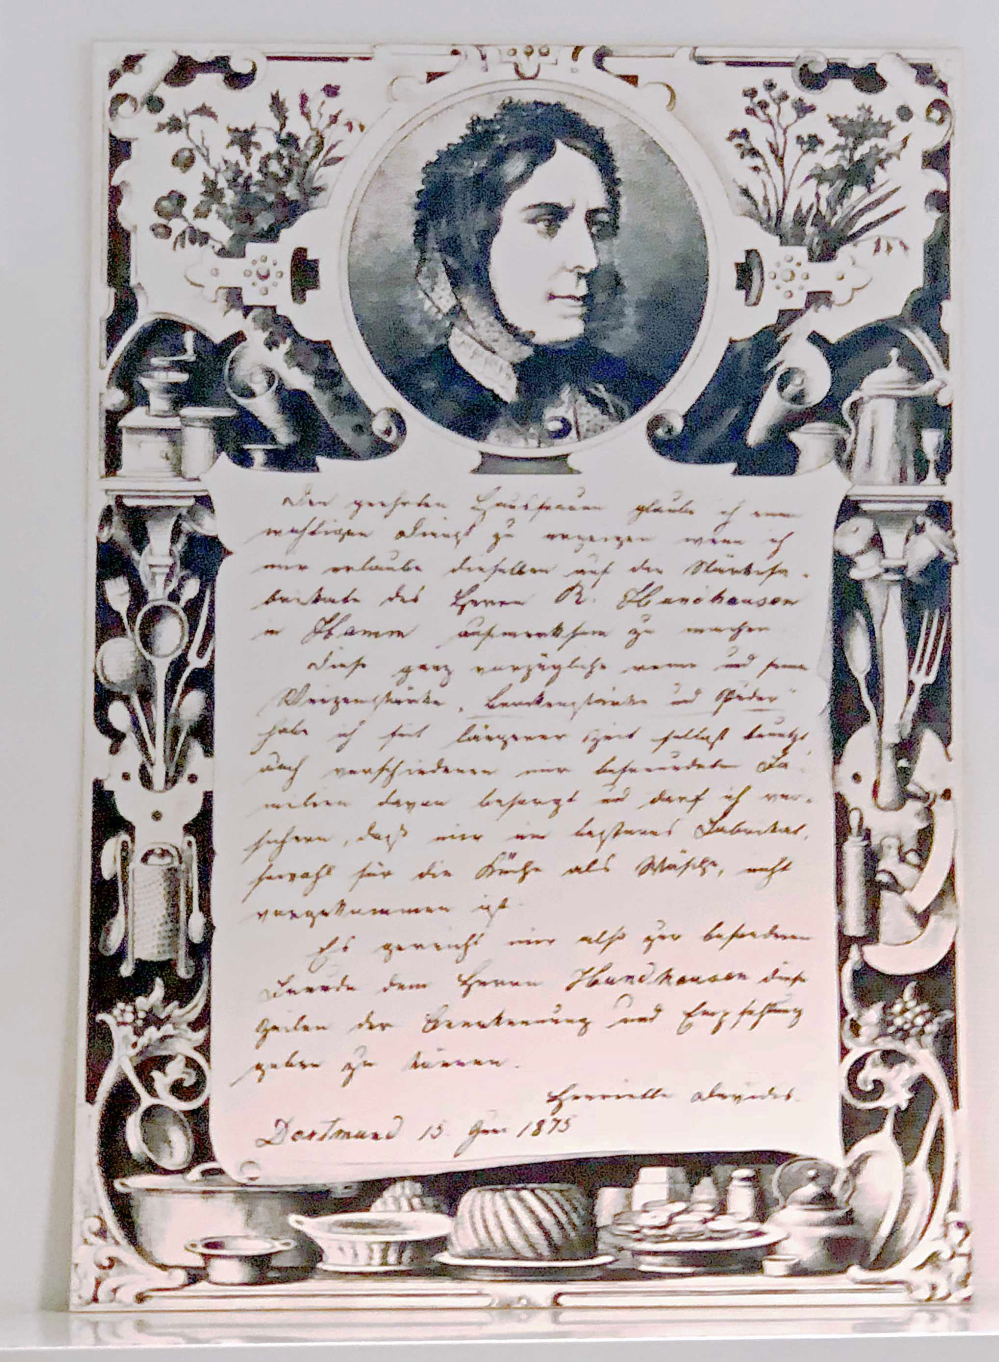 Den geehrten Hausfrauen glaube ich einen
wichtigen Dienst zu erzeigen wenn ich
mir erlaube dieselben auf die Stärkefa-
brikate des Herrn R. Hundhausen
in Hamm aufmerksam zu machen
Diese ganz vorzügliche reine und feine
Weizenstärke, „Brockenstärke und Puder“
habe ich seit längerer Zeit selbst benutzt,
auch verschiedenen mir befreundeten Fa-
milien davon besorgt und darf ich ver-
sichern, daß mir ein besseres Fabrikat,
sowohl für die Küche als Wäsche, nicht
vorgekommen ist.
Es gereicht mir also zur besonderen
Freude dem Herrn Hundhausen diese
Zeilen der Anerkennung und Empfehlung
geben zu können.
Henriette Davidis.
Dortmund 15. Juni 1875